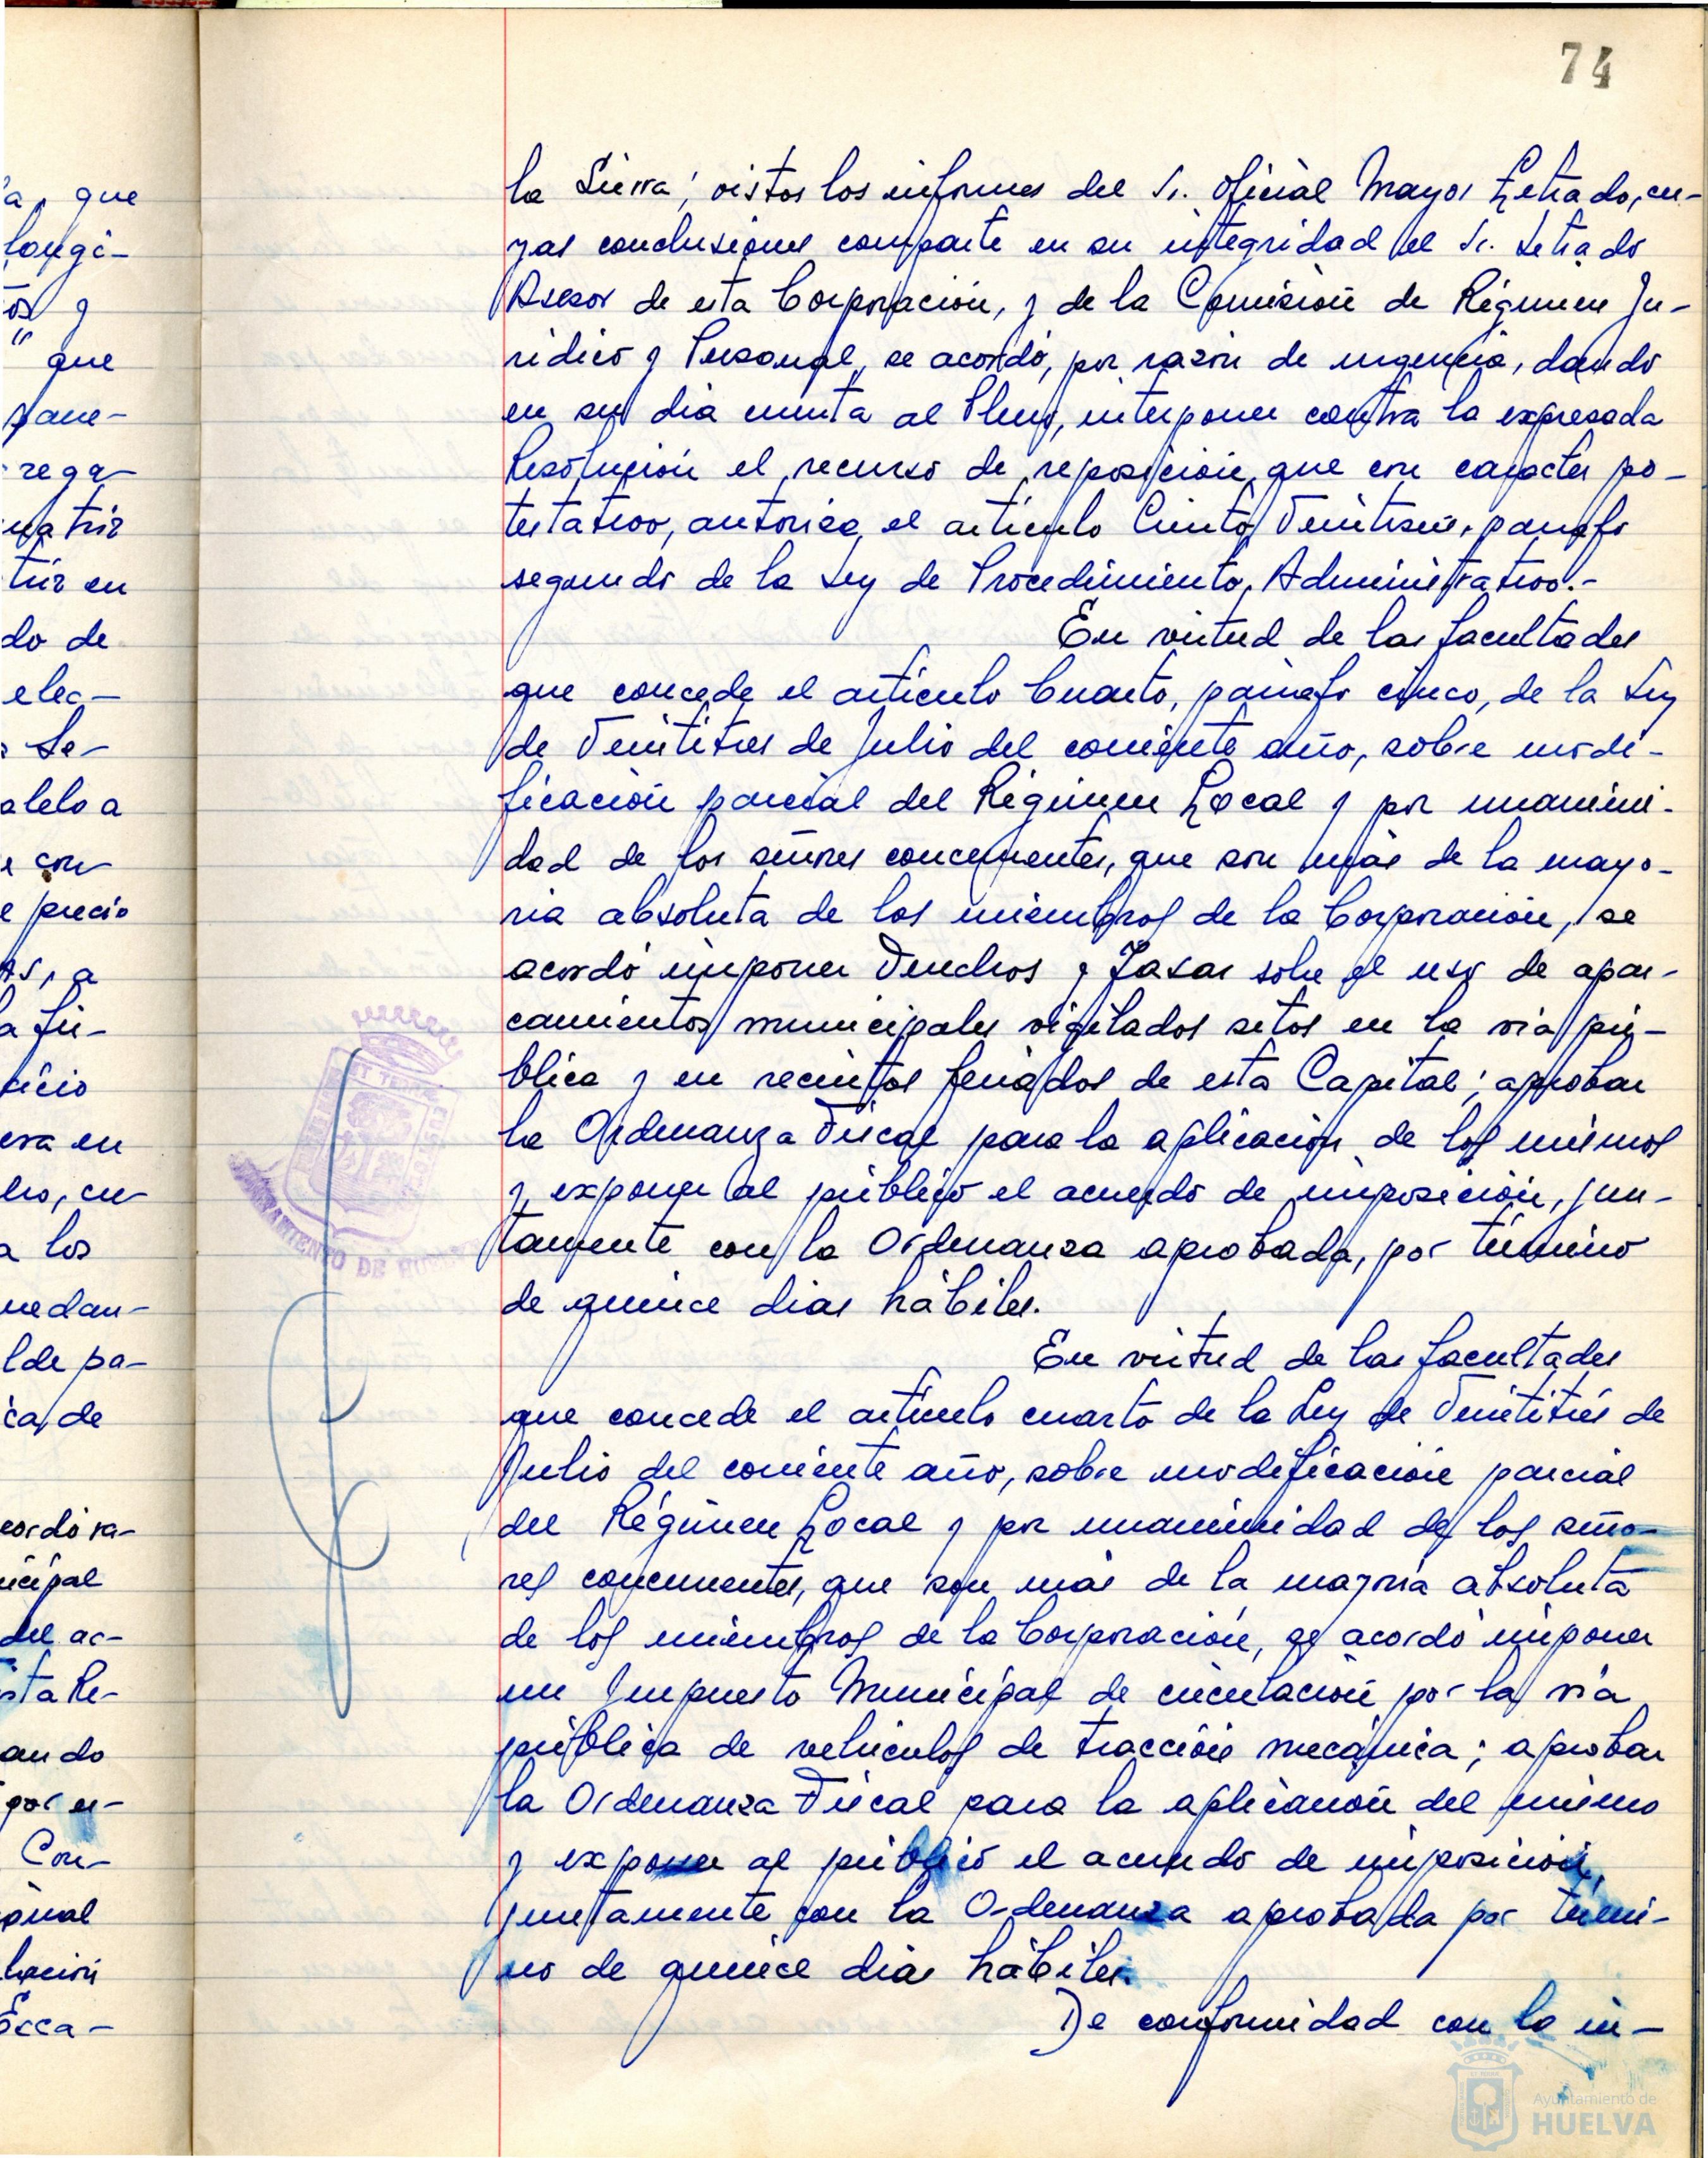 74
la Sierra; vistos los informes del Sr. Oficial Mayor Letrado, cu-
yas conclusiones comparte en su integridad el Sr. Letrado
Asesor de esta Corporación, y de la Comisión de Régimen Ju-
rídico y Personal, se acordó, por razón de urgencia, dando
en su dia cuenta al Pleno, interponer contra la expresada
Resolución el recurso de reposición, que con caracter po-
testativo, autoriza el artículo Ciento Veintiseis, parrafo
segundo de la Ley de Procedimiento Administrativo.-
En virtud de las facultades
que concede el artículo Cuarto, párrafo cinco, de la Ley
de Veintitres de Julio del corriente año, sobre modi-
ficación parcial del Régimen Local y por unanimi-
dad de los señores concurrentes, que son más de la mayo-
ria absoluta de los miembros de la Corporación, se
acordó imponer Derechos y Tasas sobre el uso de apar-
camientos municipales vigilados sitos en la vía pú-
blica y en recintos feriados de esta Capital; aprobar
la Ordenanza Fiscal para la aplicación de los mismos
y exponer al público el acuerdo de imposición, jun-
tamente con la Ordenanza aprobada, por término
de quince dias hábiles.
En virtud de las facultades
que concede el artículo cuarto de la Ley de Veintitrés de
Julio del corriente año, sobre modificación parcial
del Régimen Local y por unanimidad de los seño-
res concurrentes, que son más de la mayoría absoluta
de los miembros de la Corporación, se acordó imponer
un Impuesto Municipal de circulación por la vía
pública de vehículos de tracción mecánica; aprobar
la Ordenanza Fiscal para la aplicación del mismo
y exponer al público el acuerdo de imposición,
juntamente con la Ordenanza aprobada por térmi-
no de quince dias hábiles.
De conformidad con la in-
AYUNTAMIENTO DE HUELVA
a, que
longi-
y
" que
rega
matriz
triz en
do de
elec-
Se-
alelo a
con
e precio
a
icio
era en
cu-
a los
uedan-
lde pa-
ca, de
cordó ra-
icipal
del ac-
sta Re-
ando
por e-
Con-
onal
lación
Ayuntamiento de
HUELVA